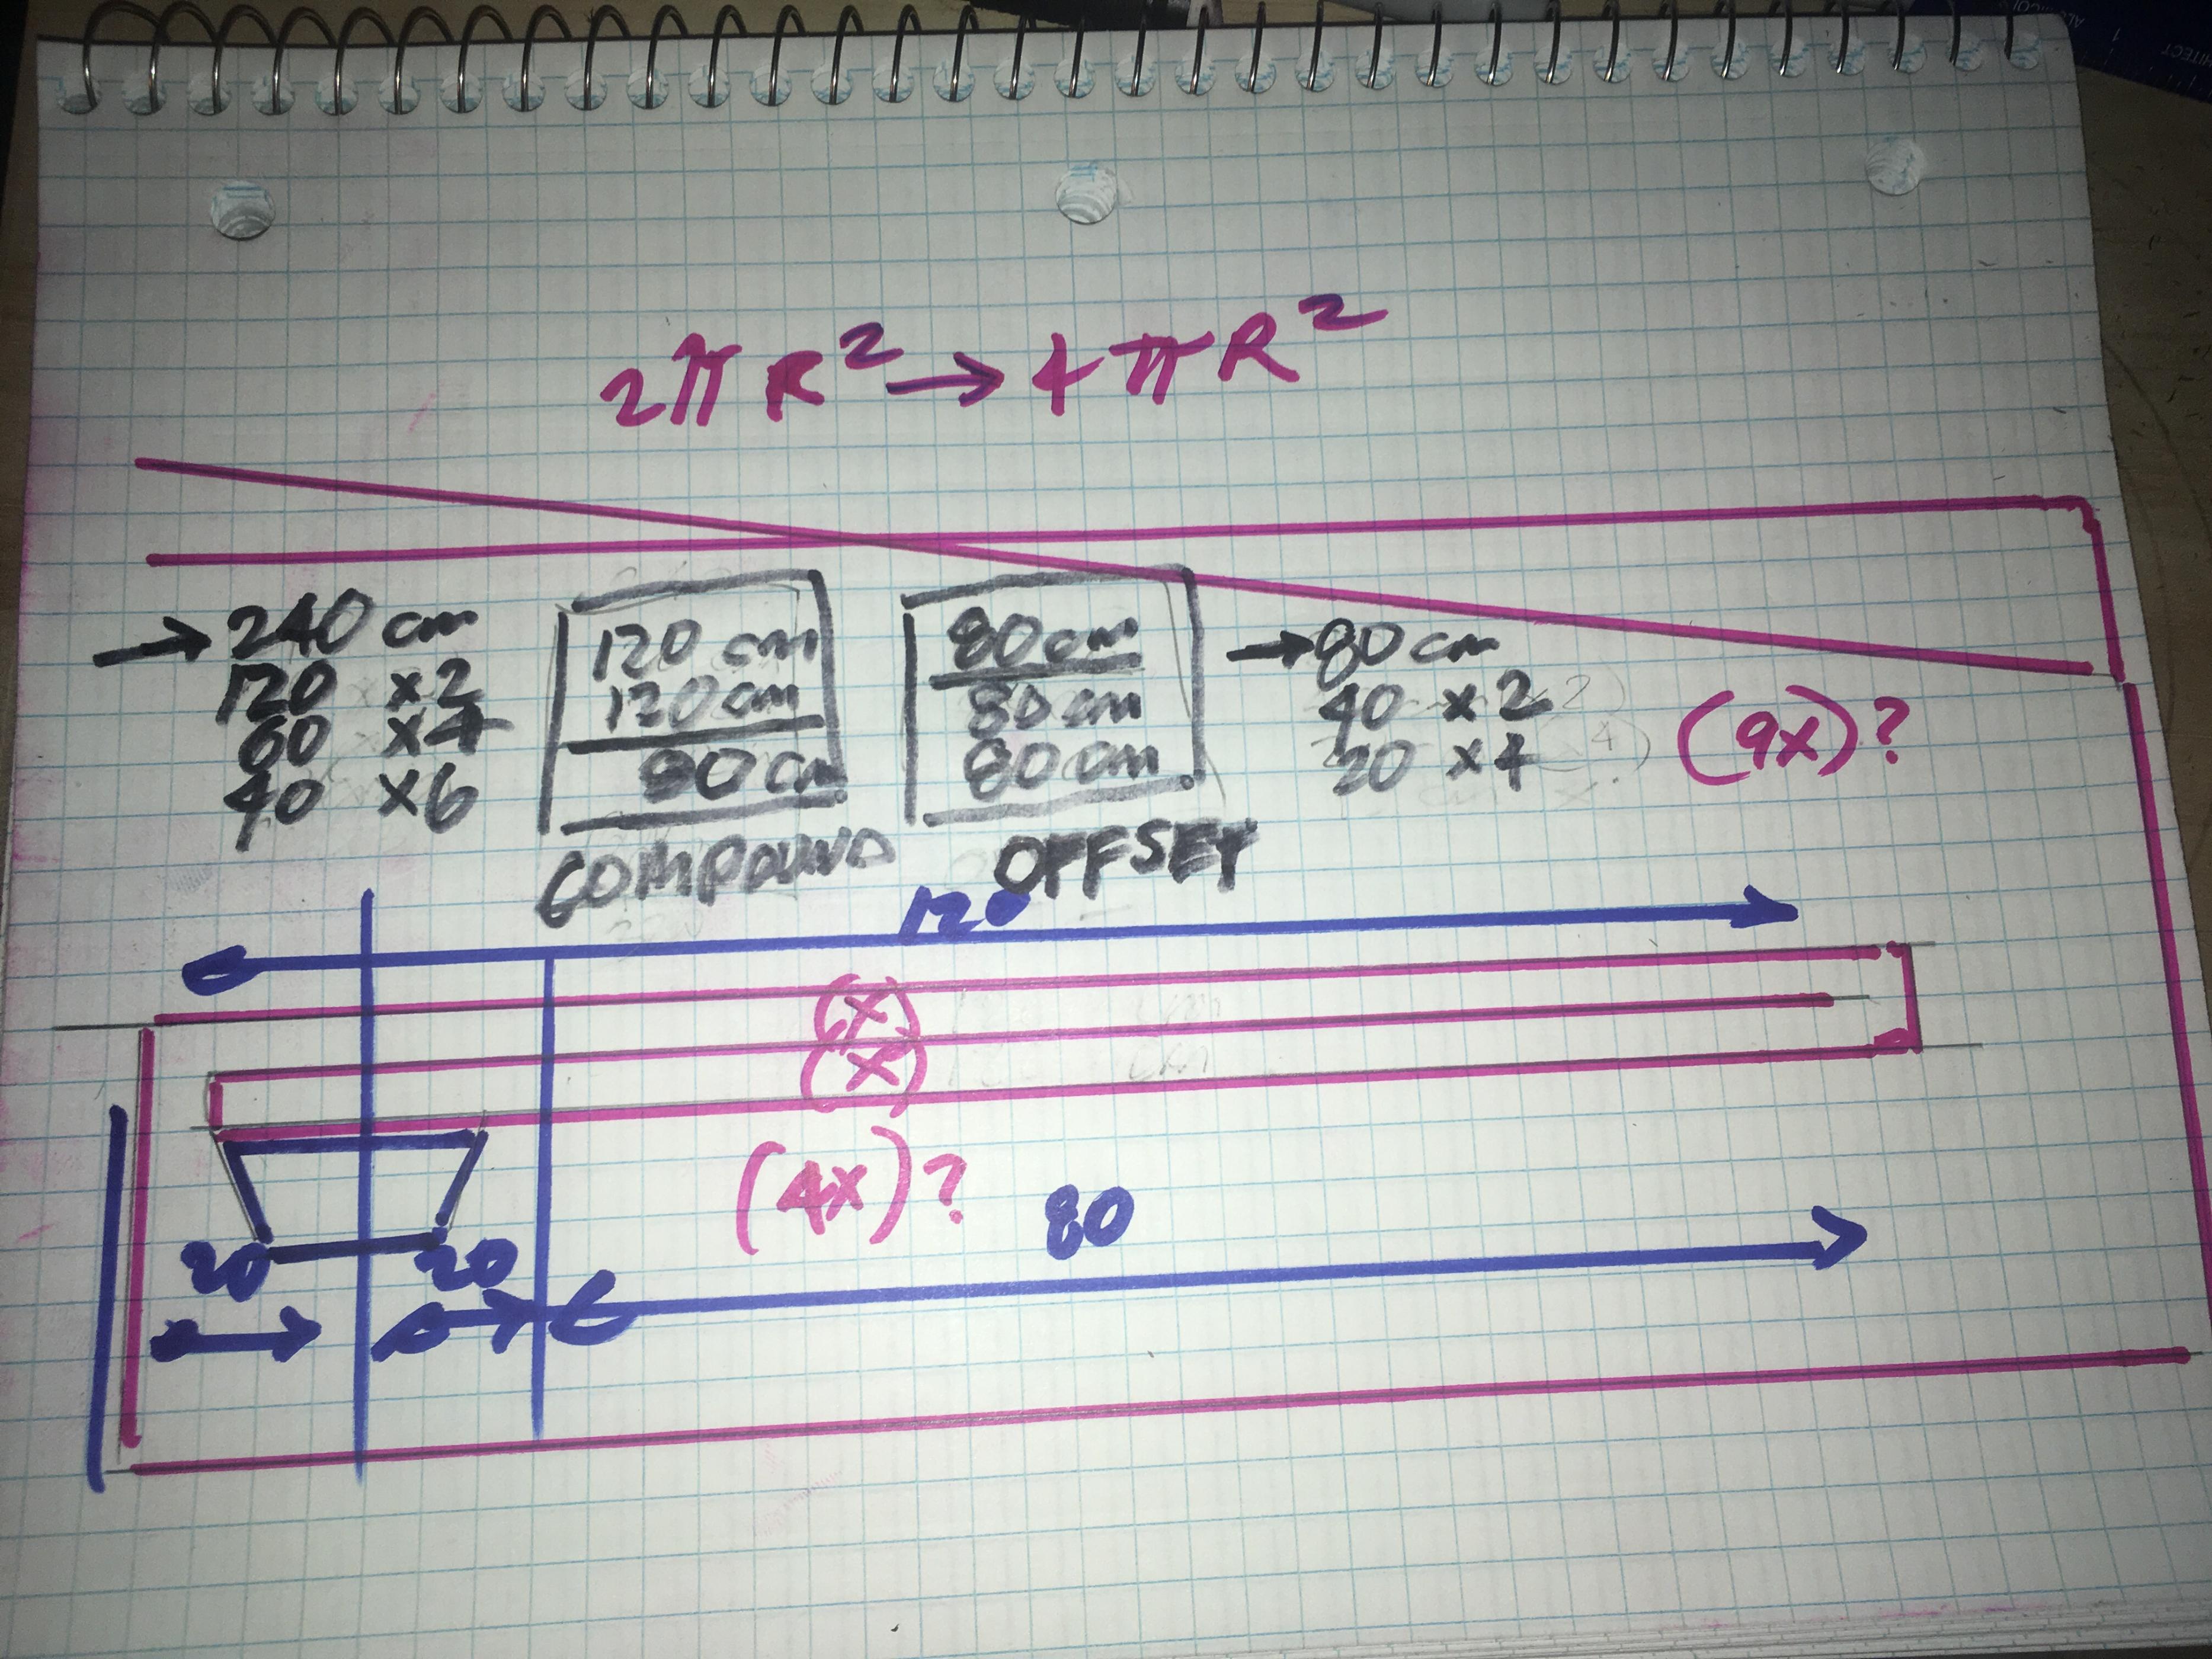 2πR² → 4πR²
→ 240 cm
120 x2
60 x4
40 x6
120 cm
120 cm
80 cm
COMPOUND
80 cm
80 cm
80 cm
OFFSET
→ 80 cm
40 x2
20 x4
(9x)?
120
(x)
(x)
(4x)?
80
20
20